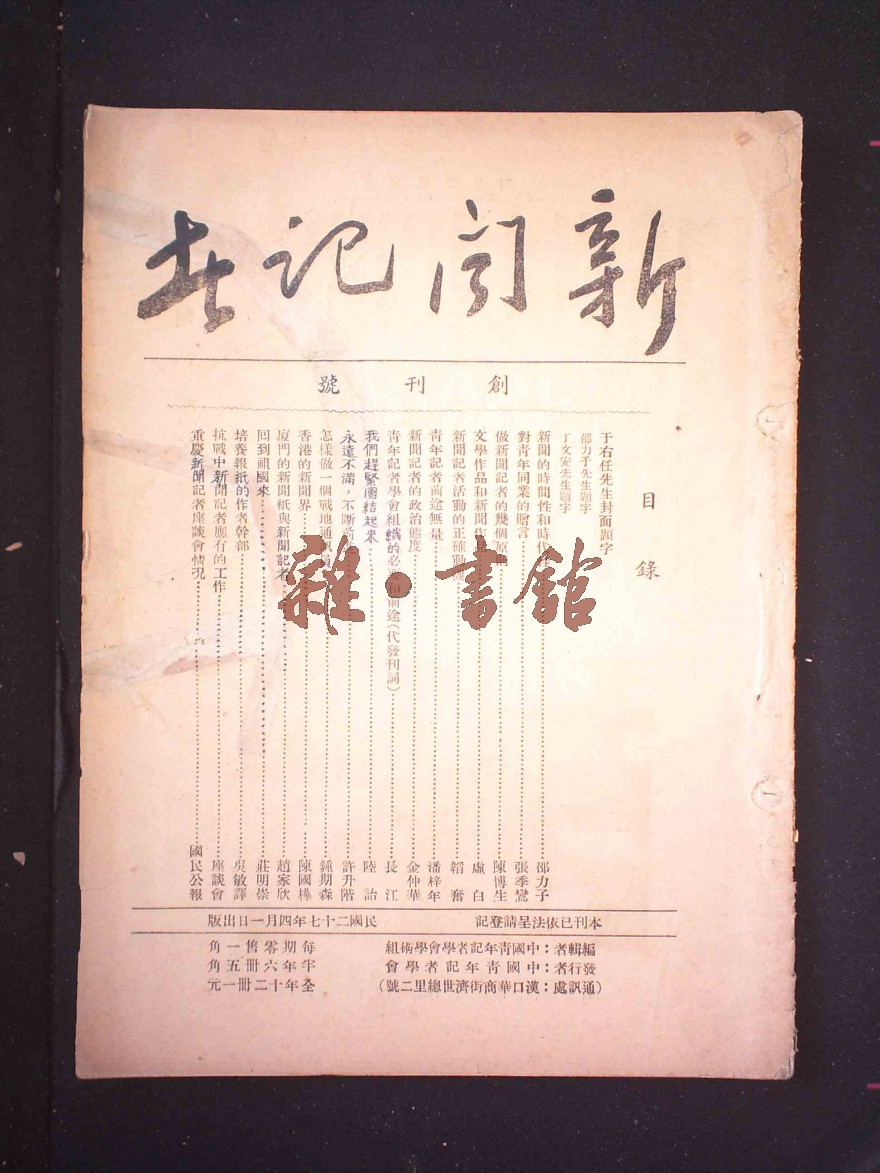 新聞記者
創刊號
目錄
于右任先生封面題字
邵力子先生題字
丁文安先生題字
新聞的時間性和時代 邵力子
對青年同業的贈言 張季鸞
做新聞記者的幾個原 陳博生
文學作品和新聞作 盧白
新聞記者活動的正確 韜奮
青年記者前途無量 潘梓年
新聞記者的政治態度 金仲華
青年記者學會組織的必要和前途(代發刊詞) 長江
我們趕緊團結起來 陸詒
永遠不滿,不斷前 許升階
怎樣做一個戰地通訊員 鍾期森
香港的新聞界 陳國樺
廈門的新聞紙與新聞記者 趙家欣
回到祖國來 莊明崇
培養報紙的作者幹部 吳敏譯
抗戰中新聞記者應有的工作 座談會
重慶新聞記者座談會情況 國民公報
雜·書館
本刊已依法呈請登記
民國二十七年四月一日出版
編輯者:中國青年記者學會學術組
發行者:中國青年記者學會
(通訊處:漢口華商街濟世總里二號)
每期零售一角
半年六冊五角
全年十二冊一元